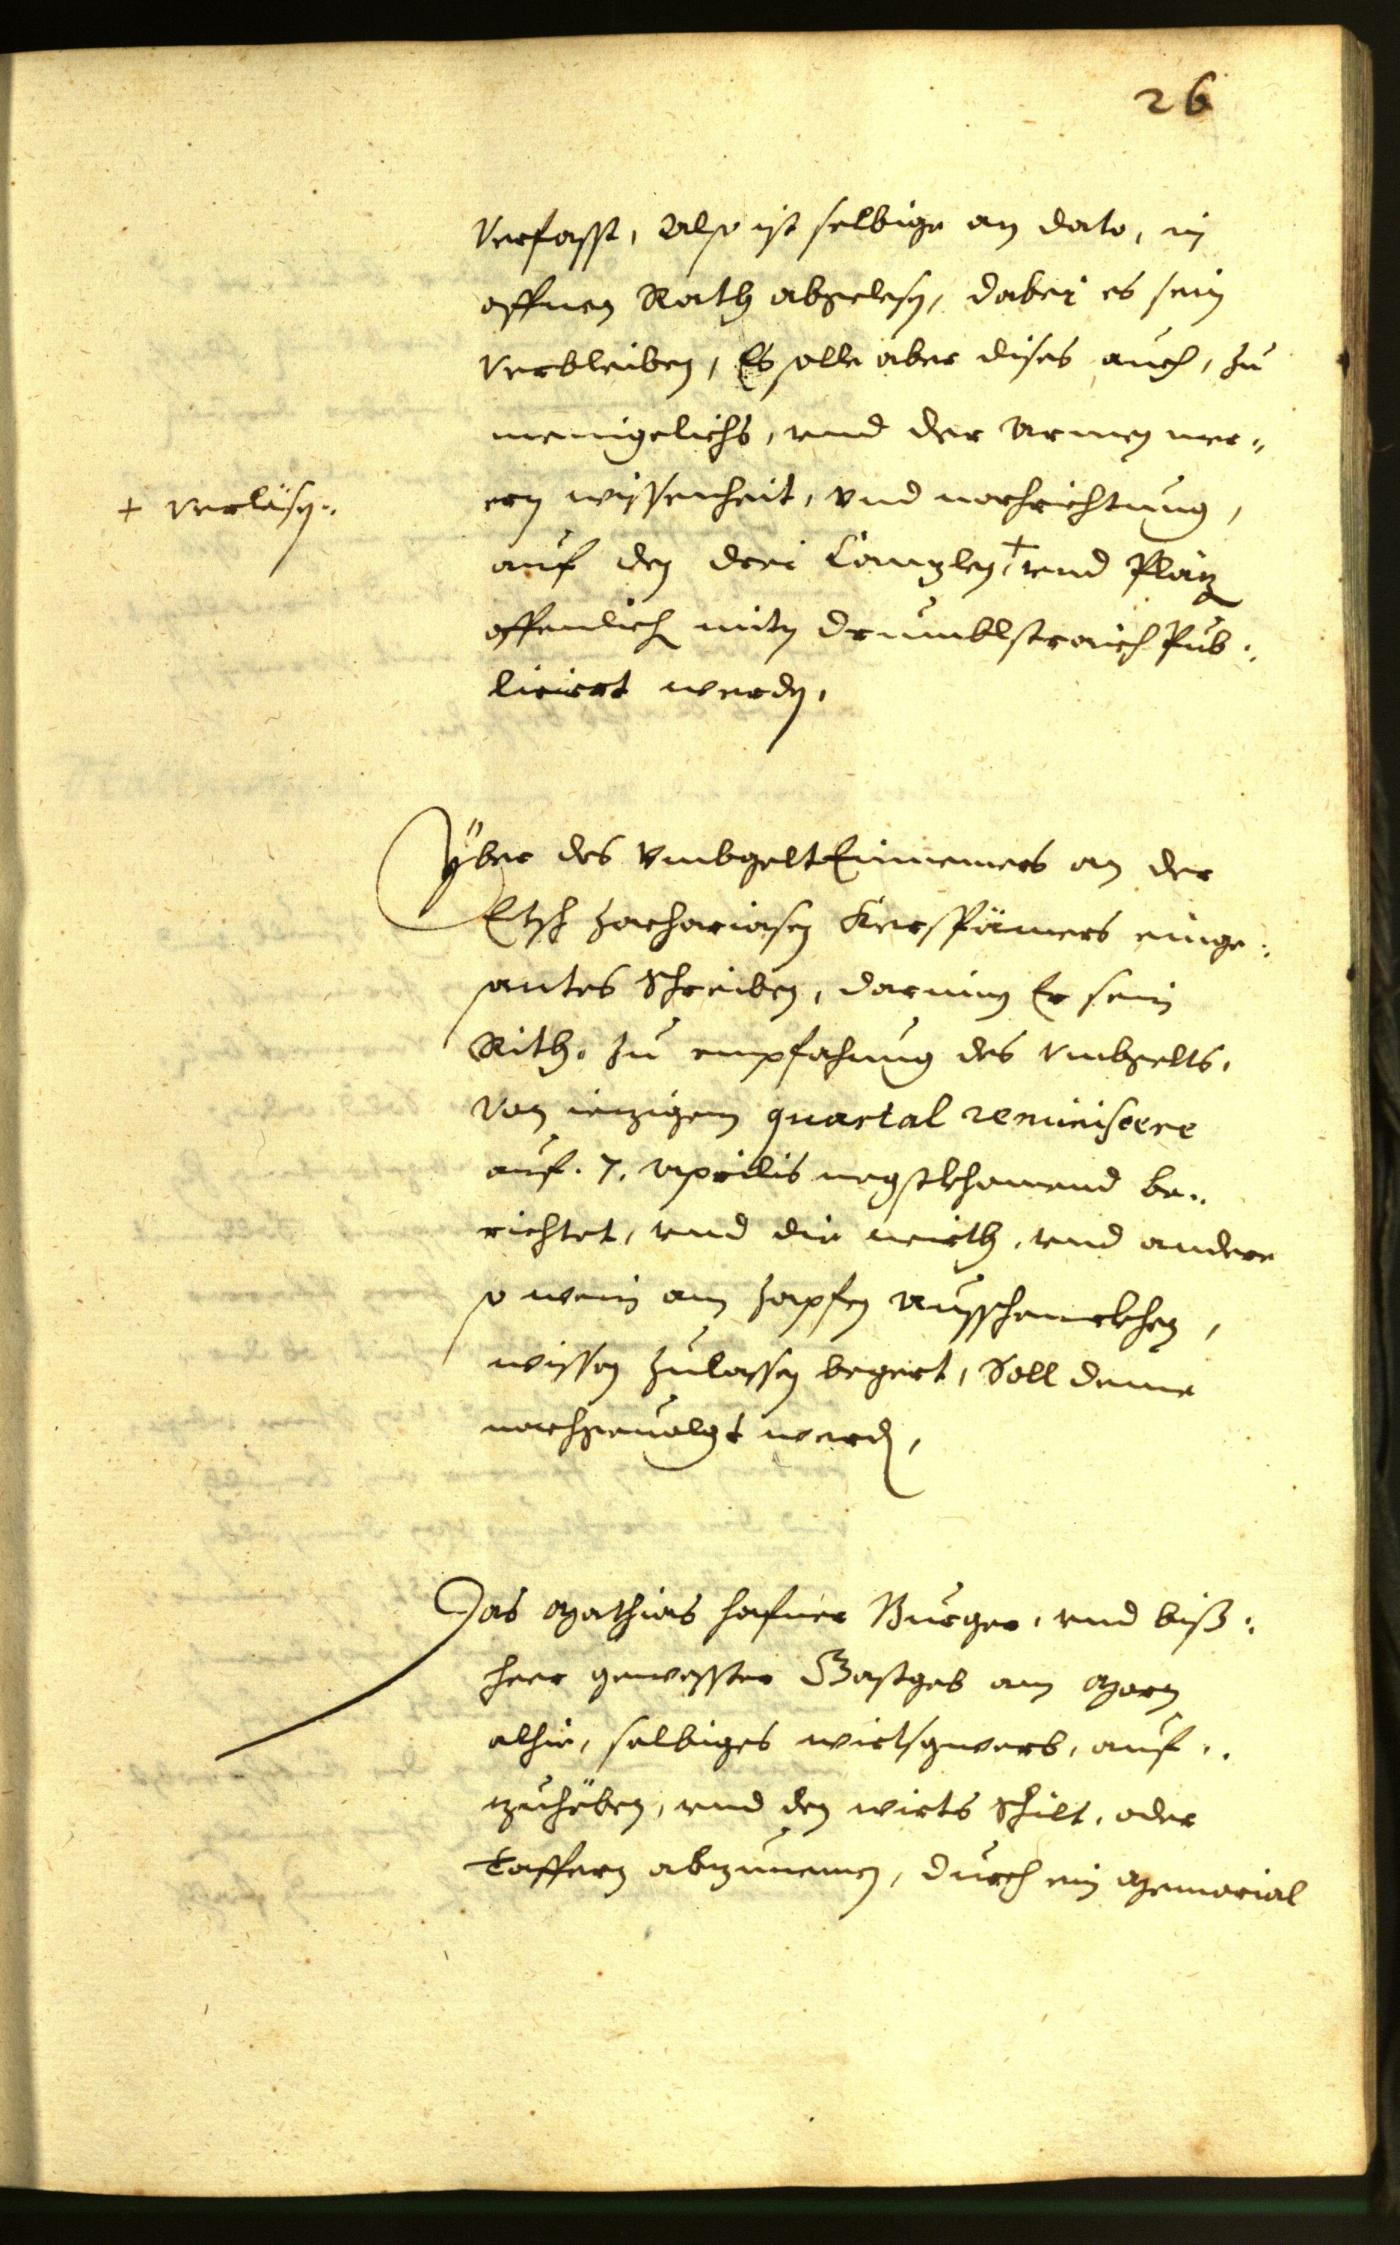 26
Verfasst, Also ist selbige an dato, in
offnen Rath abgelesen, dabei es sein
verbleiben, Es solle aber dises auch, zu
menigelichs, vnd der Armen mer¬
ern wissenheit, vnd nachrichtung,
+ verläsen..
auf den drei Canzlen, + vnd Pläz
offenlich mitn Drumblstraich Pub¬
licirt werden,
Über des Vmbgelt Einnemers an der
Etsch Zachariasen Kerspämers einge¬
santes Schreiben, darinnen Er sein
Rith. zu empfahung des vmbgelts,
Von iezigem quartal reminiscere
auf. 7. Aprilis negstkhomend be¬
richtet, vnd die wirth, vnd andere
so wein am zapfen ausschenckhen,
wissen zulassen begert, Soll deme
nachgeuolgt werden,
Das Mathias Hafner Burger, vnd biß¬
heer gewesster Gastgeb am Morn
alhie, selbiges wirtsgwerb, auf¬
zuhöben, vnd den wirts Schilt, oder
Taffern abzunemen, durch ein Memorial